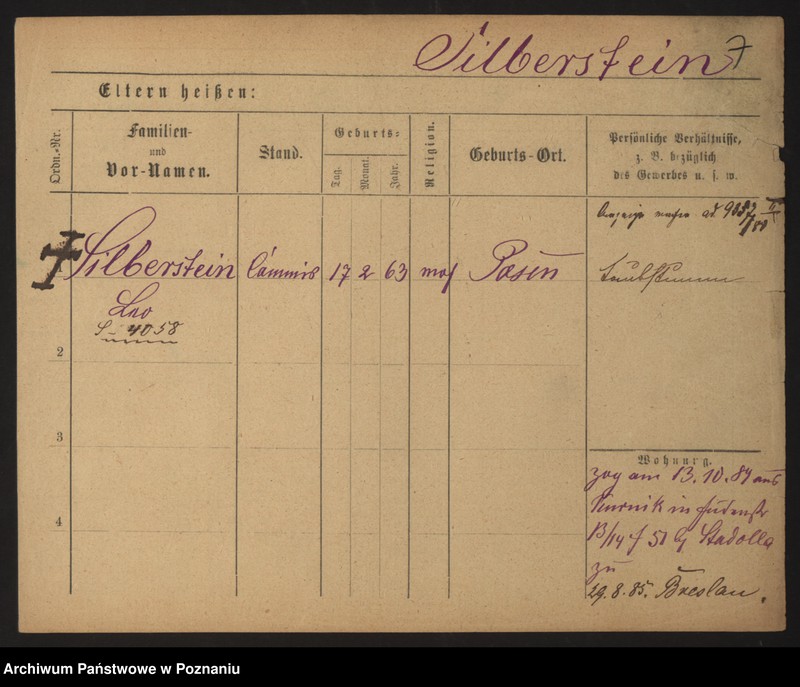 Silberstein 7
Eltern heißen:
Ordn.-Nr.
Familien-
und
Vor-Namen.
Stand.
Geburts-
Tag.
Monat.
Jahr.
Religion.
Geburts-Ort.
Persönliche Verhältnisse,
z. B. bezüglich
des Gewerbes u. s. w.
Silberstein Commis 17 2 63 mos Posen taubstumm
Leo
S. 4058
2
3
4
Wohnung.
zog am 13.10.84 aus
Kurnik in Judenstr
13/14 f 50 G Stadolla
zu
29.8.85. Breslau.
Archiwum Państwowe w Poznaniu